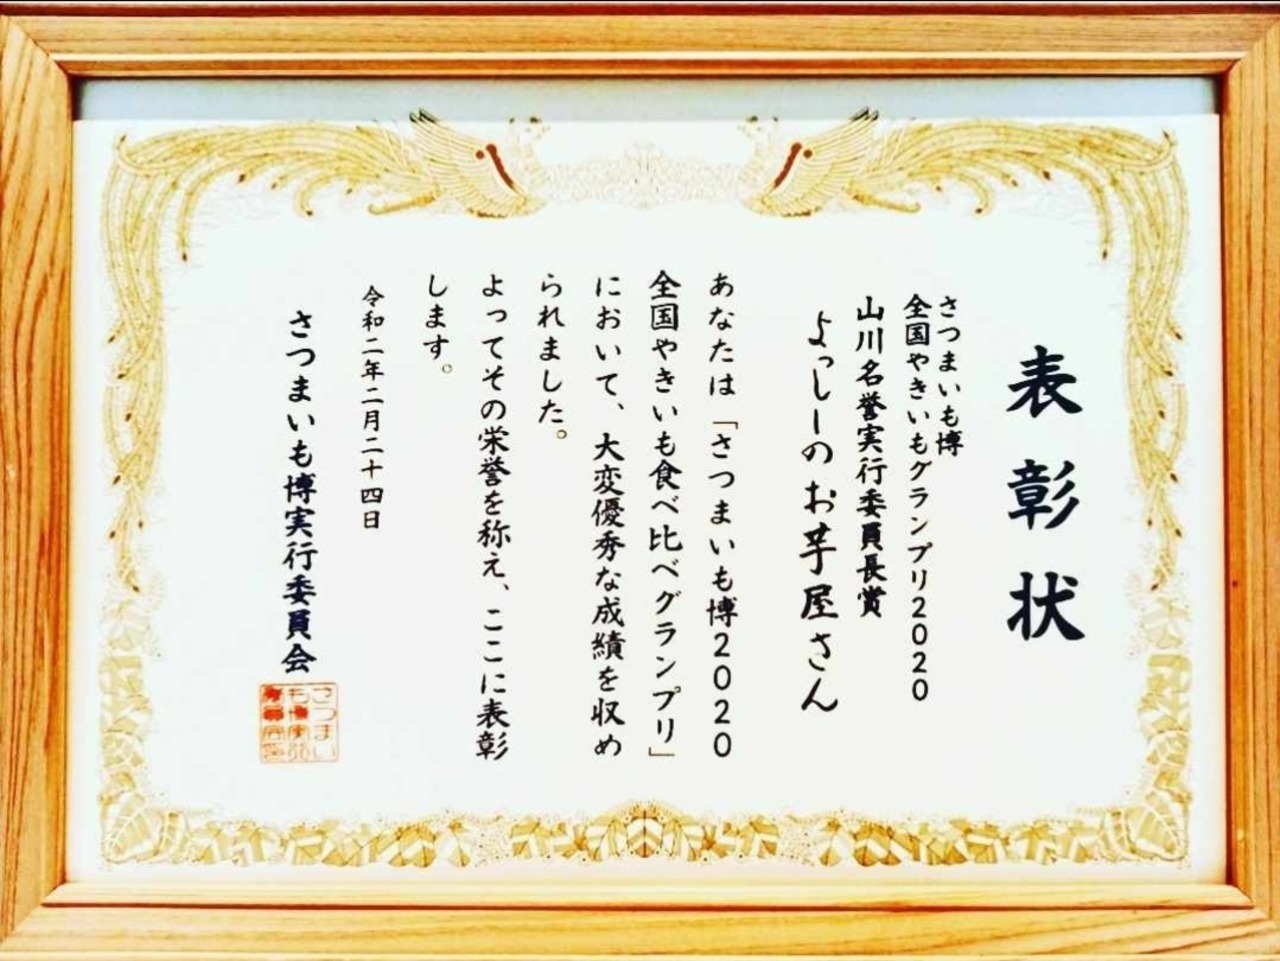 表彰状
さつまいも博
全国やきいもグランプリ2020
山川名誉実行委員長賞
よっしーのお芋屋さん
あなたは「さつまいも博2020
全国やきいも食べ比べグランプリ」
において、大変優秀な成績を収め
られました。
よってその栄誉を称え、ここに表彰
します。
令和二年二月二十四日
さつまいも博実行委員会
さつまい
も博実行
委員会印